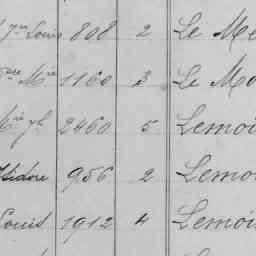 Jn Louis 808 2 Le Me
Mie 1160 3 Le Mo
Mie 2460 5 Lemoi
Isidore 956 2 Lemo
Louis 1912 4 Lemoi